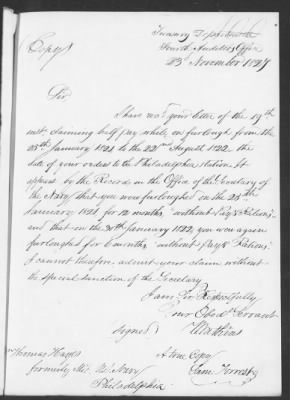 Copy
Treasury Dept
Fourth Auditors Office
23d November 1827
Sir
I have recd your letter of the 19th
inst. claiming half pay while on furlough from the
25th January 1821 to the 22nd August 1822. the
date of your orders to the Philadelphia station. It
appears by the Record in the Office of the Secretary of
the Navy that you were furloughed on the 25th
January 1821 for 12 months "without Pay & Rations"
and that on the 30th January 1822, you were again
furloughed for 6 months "without Pay & Rations"
I cannot therefore admit your claim without
the special sanction of the Secretary
I am Sir Respectfully
Your Obedt Servant
Signed
Thomas
A true Copy
formerly U.S. Navy
Philadelphia